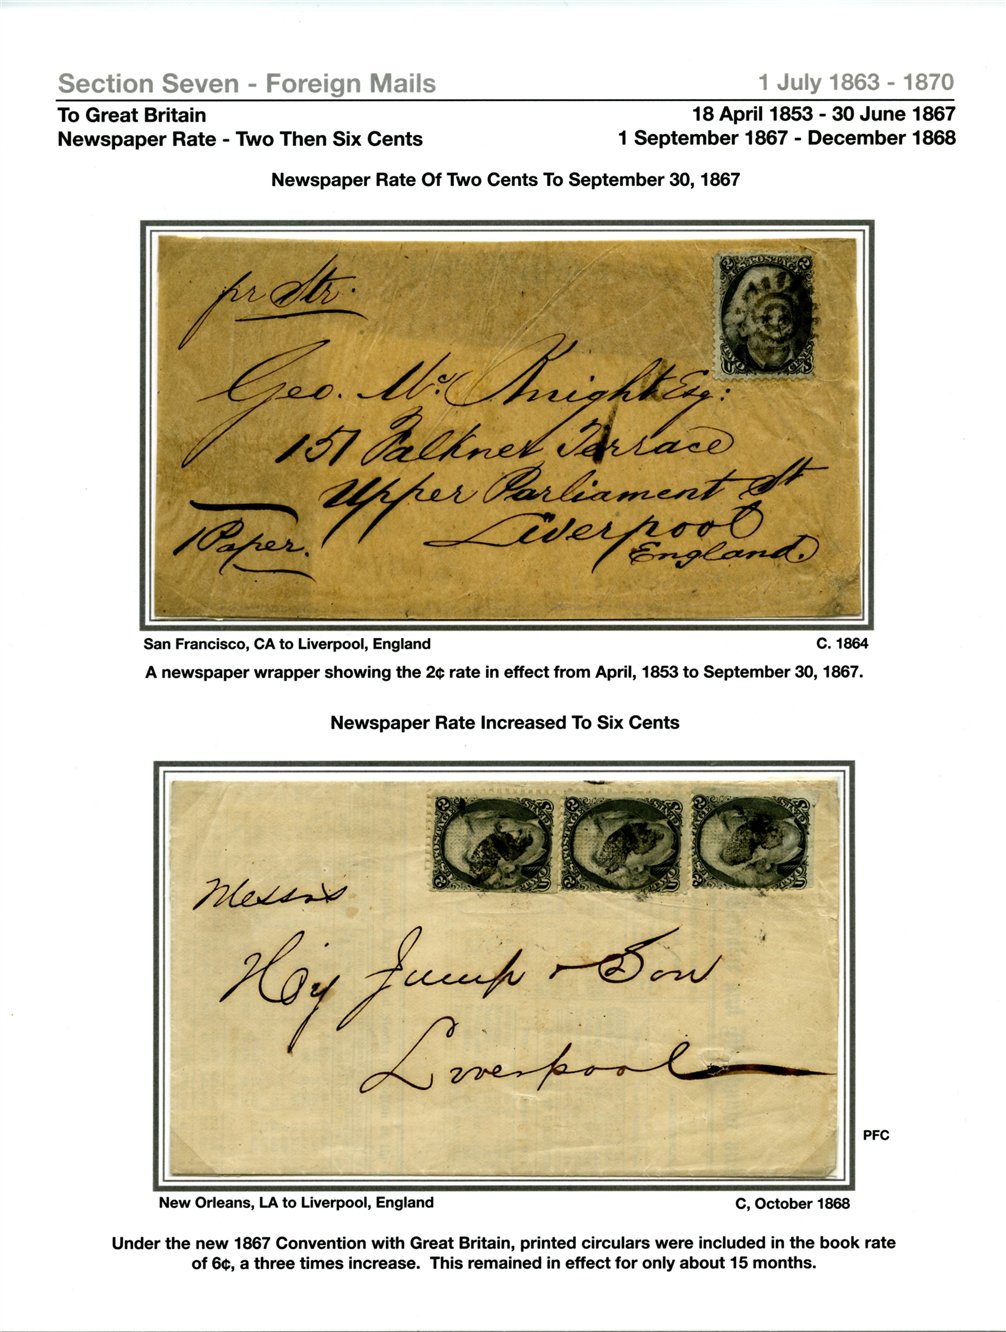 Section Seven - Foreign Mails
1 July 1863 - 1870
To Great Britain
18 April 1853 - 30 June 1867
Newspaper Rate - Two Then Six Cents
1 September 1867 - December 1868
Newspaper Rate Of Two Cents To September 30, 1867
pr Str.
Geo. McKnight Esq:
151 Falkner Terrace
Upper Parliament St
Liverpool
England.
1 Paper.
San Francisco, CA to Liverpool, England
C. 1864
A newspaper wrapper showing the 2¢ rate in effect from April, 1853 to September 30, 1867.
Newspaper Rate Increased To Six Cents
Messrs
Hy Jump & Son
Liverpool
PFC
New Orleans, LA to Liverpool, England
C, October 1868
Under the new 1867 Convention with Great Britain, printed circulars were included in the book rate
of 6¢, a three times increase. This remained in effect for only about 15 months.